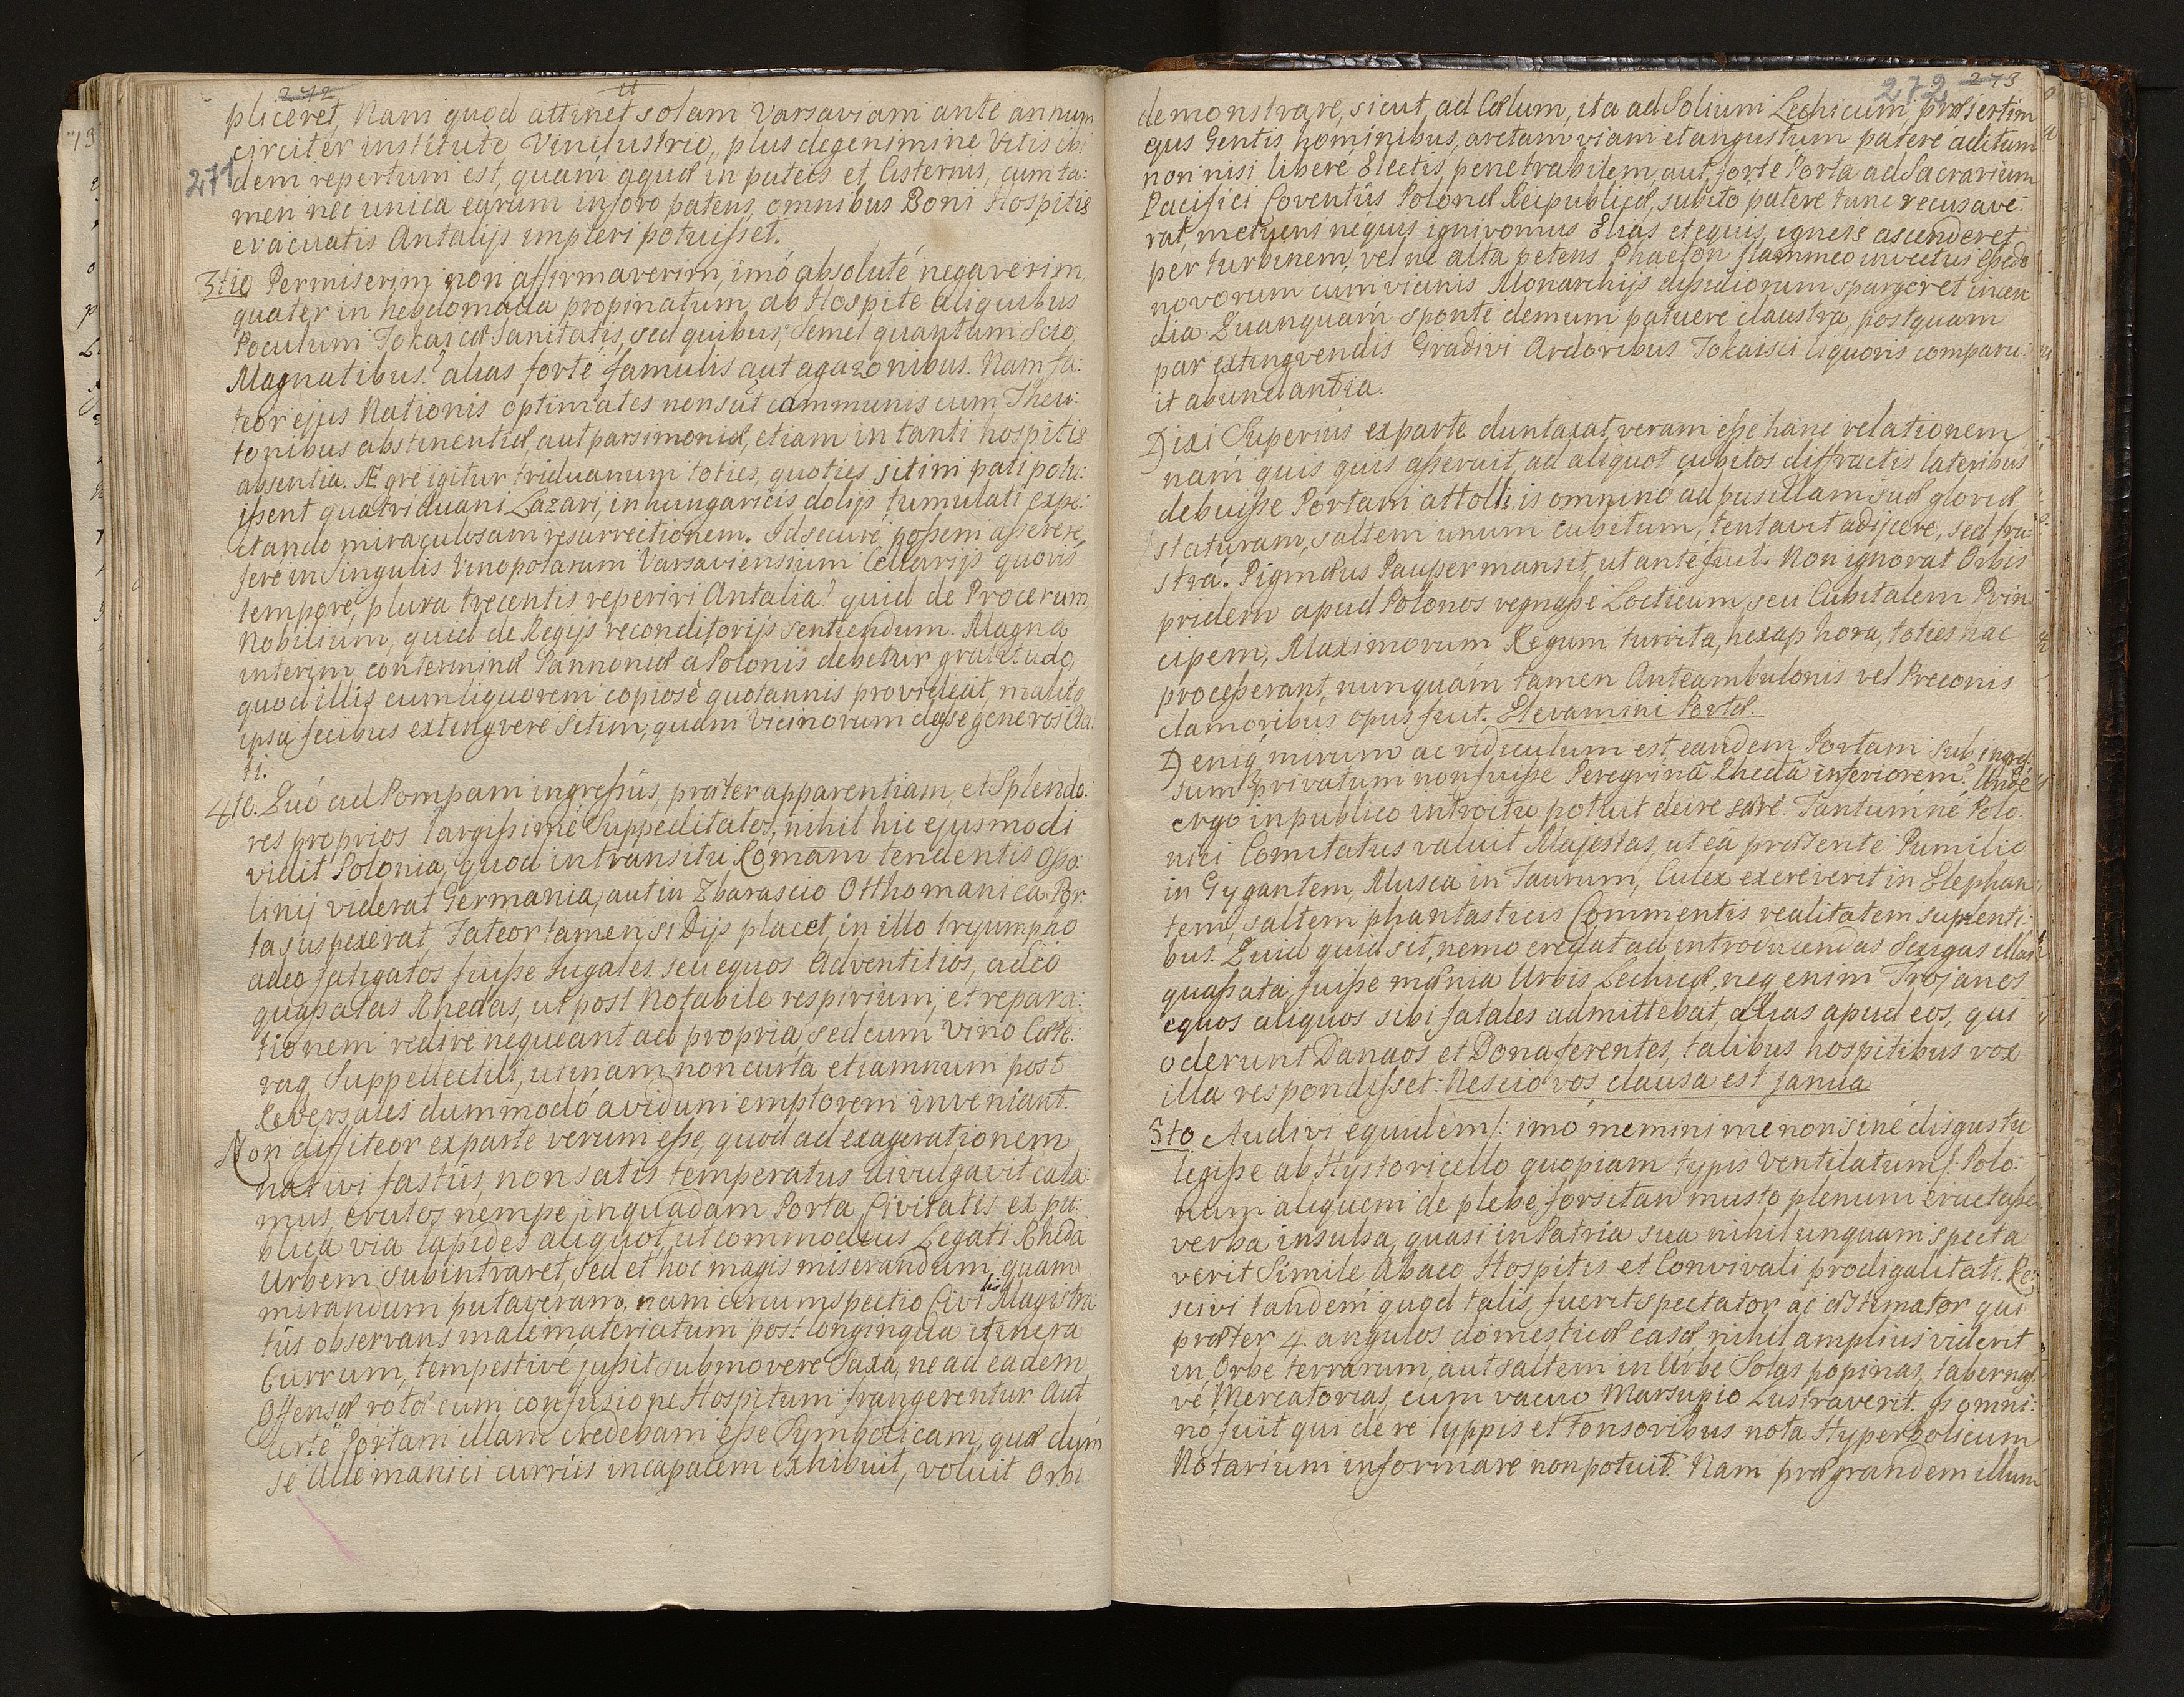 272
pliceret, Nam quod attinet solam Varsaviam ante annum
circiter institute Vinilustrio, plus de genimine Vitis ibi
271
dem repertum est, quam aquæ in puteis et Cisternis, cum ta:
men nec unica earum in foro patens, omnibus Boni Hospitis
evacuatis Antalijs impleri potuisset.
3tio Permiserim non affirmaverim, imó absoluté negaverim
quater in hebdomada propinatum ab Hospite aliquibus
Poculum Tokaicæ Sanitatis, sed quibus, Semel quantum Scio,
Magnatibus? alias forté famulis aut agazonibus. Nam fa:
teor ejus Nationis optimates non sūt communis cum Theu:
tonibus abstinentiæ, aut parsimoniæ, etiam in tanti hospitis
absentia. Ægre igitur triduanum toties, quoties sitim pati potu:
issent quatriduani Lazari, in hungaricis dolijs tumulati expe:
ctando miraculosam resurrectionem. Id securé possem asserere,
fere in Singulis Vinopotarum Varsaviensium Cellarijs quovis
tempore, plura trecentis reperiri Antalia? quid de Procerum,
Nobilium, quid de Regijs reconditorijs sentiendum. Magna
interim conterminæ Pannoniæ á Polonis debetur gratitudo,
quod illis eum liquorem copiosé quotannis provideat, malit
ipsa fecibus extingvere Sitim, quam Vicinorum deesse generositā
ti.
4to. Quó ad Pompam ingressús, præter apparentiam, et Splendo:
res proprios largissimé Suppeditatos, nihil hic ejusmodi
vidit Polonia, quod in transitu Romam tendentis Osso:
linij viderat Germania, aut in Zbarascio Otthomanica Por:
ta suspexerat, Fateor tamen, si Dijs placet, in illo triumpho
adeo fatigatos fuisse Jugales seu equos Adventitios, adeó
quassatas Rhedas, ut post Notabile respirium, et repara:
tionem redire nequeant ad propria, sed cum Vino Cæte:
raq Suppellectili, utinam non curta etiamnum post
Reversales dummodó avidum emptorem inveniant.
Non diffiteor exparte verum esse, quod ad exagerationem
nativi fastús, non satis temperatus divulgavit cala
mus, erutos nempe in quadam Porta Civitatis ex pu:
blica via lapides aliquot, ut commodius Legati Rheda
Urbem subintraret, sed et hoc magis miserandum, quam
mirandum putaveram, nam circumspectio Civilis Magistra
tús observans malé materiatum post longinqua itinera
Currum, tempestivé jussit submovere Saxa, ne ad eadem
Offensæ rotæ cum confusione Hospitum frangerentur. Aut
certé Portam illam credebam esse Symbolicam, quæ dúm
se Allemanici currús incapacem exhibuit, voluit Orbi
272 273
demonstrare, sicut ad Cælum, ita ad Solium Lechicum, præsertim
ejus Gentis hominibus, arctam viam et angustum patere aditum
non nisi libere Electis, penetrabilem, aut forte Porta ad Sacrarium
Pacifici Coventús Polonæ Reipublicæ, subito patere tunc recusave:
rat, metuens nequis ignivomus Elias et equis igneis ascenderet
per turbinem, vel ne alta petens Phaeton flammeo invectus Rhedo
novorum cum vicinis Monarchijs dissidiorum spargeret incen
dia. Quanquam sponte demum patuere claustra, postquam
par extingvendis Gradivi Ardoribus Tokaisci liquoris comparu:
it abundantia.
Dixi Superius exparte duntaxat veram esse hanc relationem
nam quis quis asseruit, ad aliquot cubitos diffractis lateribus
debuisse Portam attolli, is omninó ad pusillam suæ gloriæ
staturam, saltem unum cubitum, tentavit adijcere, sed fru
stra. Pigmæus Pauper mansit, ut ante fuit. Non ignorat Orbis
pridem apud Polonos regnasse Locticum, seu Cubitalem Prin
cipem, Maximorum Regum turrita, hexaphora, toties hac
processerant, nunquám tamen Anteambulonis vel Preconis
clamoribus opus fuit. Elevamini Portæ.
Deniq mirum ac ridiculum est eandem Portam sub ingres:
sum privatum non fuisse Peregriná Rhedá inferiorem? Unde
ergo in publico introitu potuit deire Tantum né Polo:
nici Comitatus valuit Majestas, ut eá præsente Pumilio
in Gygantem, Musca in Taurum, Culex excreverit in Elephan
tem, saltem phantasticis Commentis realitatem suplenti:
bus. Quid quid sit, nemo credat ad introducendas Sexigas illas
quassata fuisse mænia Urbis Lechicæ, neq enim Trojanos
equos aliquos sibi fatales admittebat, alias apud eos, qui
oderunt Danaos et Dona ferentes, talibus hospitibus vox
illa respondisset: Nescio vos, clausa est janua
5to Audivi equidem/: imo memini me non sine disgustu
legisse ab Hystoricello quopiam typis ventilatum/: Polo:
num aliquem de plebe forsitan musto plenum eructasse
verba insulsa, quasi in Patria sua nihil unquam specta
verit Simile Abaco Hospitis et Convivali prodigalitati. Re:
scivi tandem quod talis, fuerit spectator ac æstimator qui
præter 4 angulos domesticæ casæ, nihil amplius viderit
in Orbe terrarum, aut saltem in Urbe Solas popinas, tabernas
ve Mercatorias, cum vacuo Marsupio Lustraverit. Is omni:
no fuit qui de re lyppis et tonsoribus nota Hyperbolicum
Notarium informare non potuit. Nam prægrandem illum